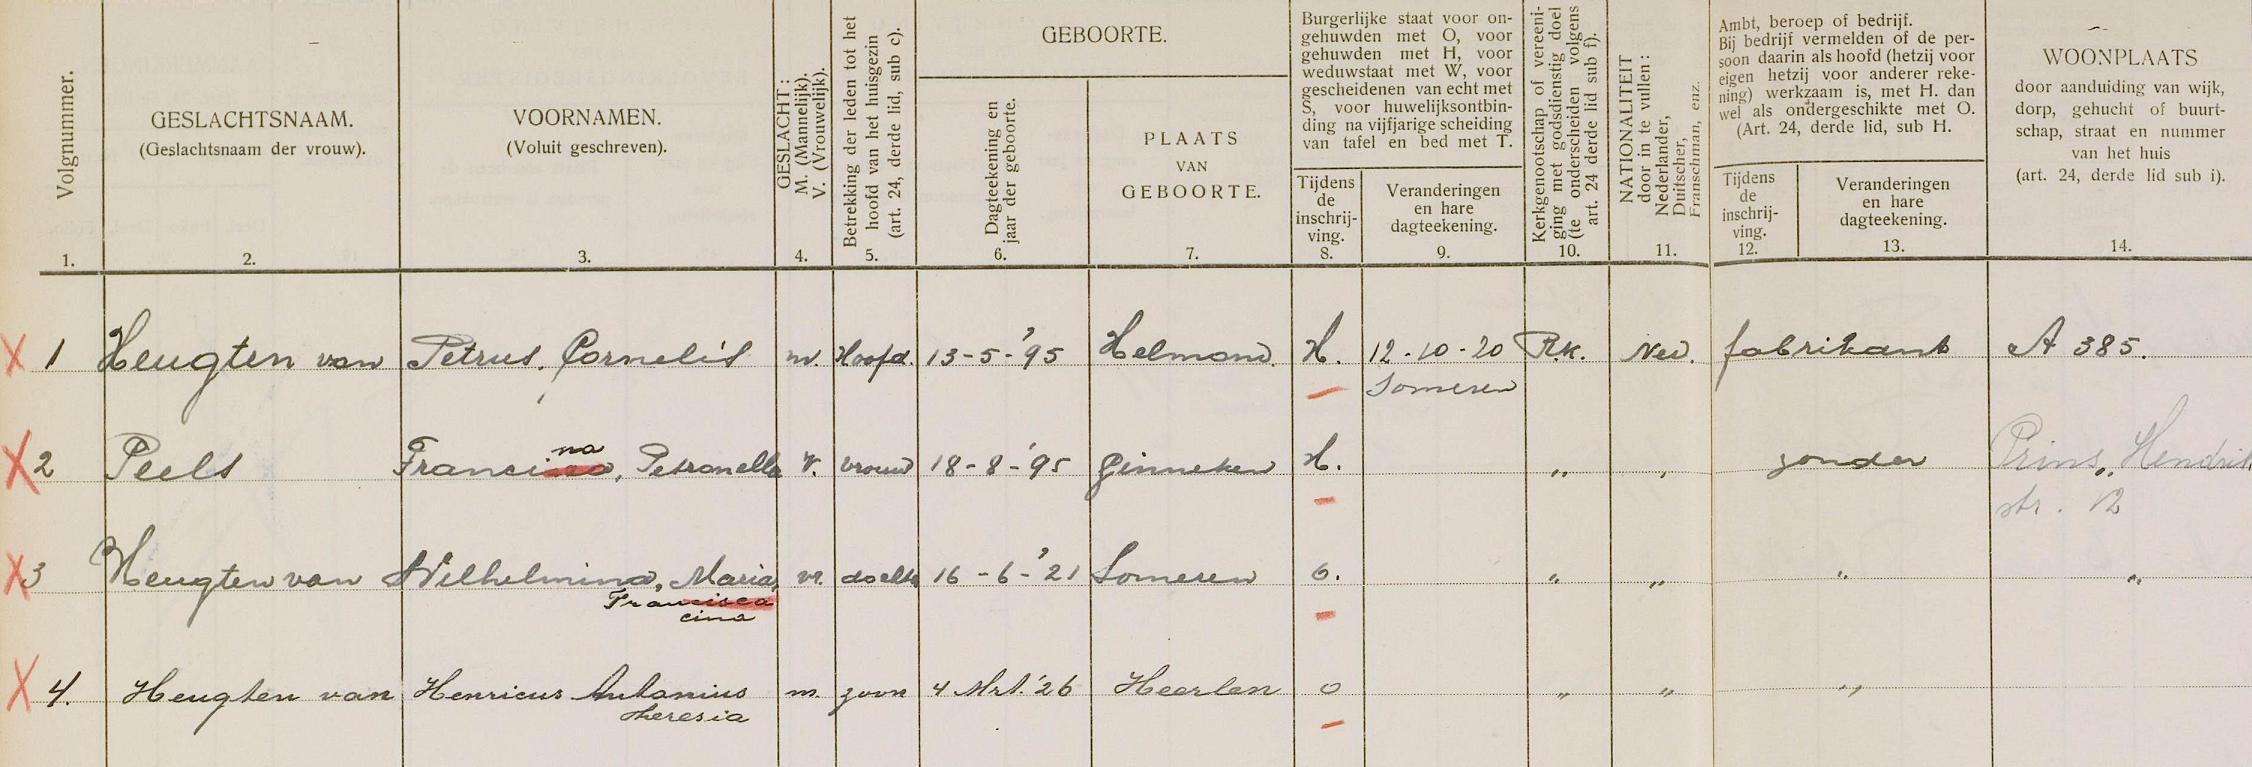 Volgnummer.
1.
GESLACHTSNAAM.
(Geslachtsnaam der vrouw).
2.
VOORNAMEN.
(Voluit geschreven).
3.
GESLACHT:
M. (Mannelijk).
V. (Vrouwelijk).
4.
Betrekking der leden tot het
hoofd van het huisgezin
(art. 24, derde lid, sub c).
5.
GEBOORTE.
Dagteekening en
jaar der geboorte.
6.
PLAATS
VAN
GEBOORTE.
7.
Burgerlijke staat voor on-
gehuwden met O, voor
gehuwden met H, voor
weduwstaat met W, voor
gescheidenen van echt met
S, voor huwelijksontbin-
ding na vijfjarige scheiding
van tafel en bed met T.
Tijdens
de
inschrij-
ving.
8.
Veranderingen
en hare
dagteekening.
9.
Kerkgenootschap of vereeni-
ging met godsdienstig doel
(te onderscheiden volgens
art. 24 derde lid sub f).
10.
NATIONALITEIT
door in te vullen:
Nederlander,
Duitscher,
Franschman, enz.
11.
Ambt, beroep of bedrijf.
Bij bedrijf vermelden of de per-
soon daarin als hoofd (hetzij voor
eigen hetzij voor anderer reke-
ning) werkzaam is, met H. dan
wel als ondergeschikte met O.
(Art. 24, derde lid, sub H.
Tijdens
de
inschrij-
ving.
12.
Veranderingen
en hare
dagteekening.
13.
WOONPLAATS
door aanduiding van wijk,
dorp, gehucht of buurt-
schap, straat en nummer
van het huis
(art. 24, derde lid sub i).
14.
X 1 Heugten van Petrus, Cornelis m. Hoofd. 13-5-'95 Helmond. H. 12-10-20 R.k. Ned. fabrikant A 385.
Someren
na
X 2 Peels Francisca, Petronella V. vrouw 18-8-'95 Ginneken H. „ „ zonder „
Prins Hendrik
str. 12
X 3 Heugten van Wilhelmina, Maria, vr. docht. 16-6-'21 Someren O. „ „ „ „
Francisca
cina
X 4. Heugten van Henricus Antonius m. zoon 4 Mrt. '26 Heerlen O „ „ „
Theresia